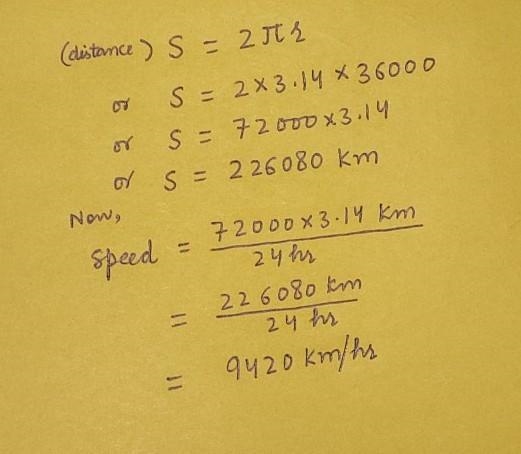 (distance) S = 2πr
or S = 2×3.14×36000
or S = 72000×3.14
or S = 226080 km
Now,
Speed = 72000×3.14 km
24 hr
= 226080 km
24 hr
= 9420 km/hr